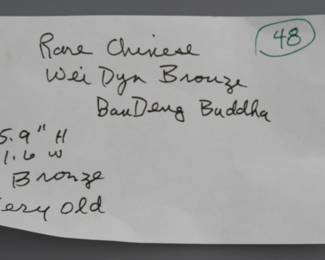 48
Rare Chinese
Wei Dyn Bronze
BauDeng Buddha
5.9" H
1.6 W
Bronze
Very Old